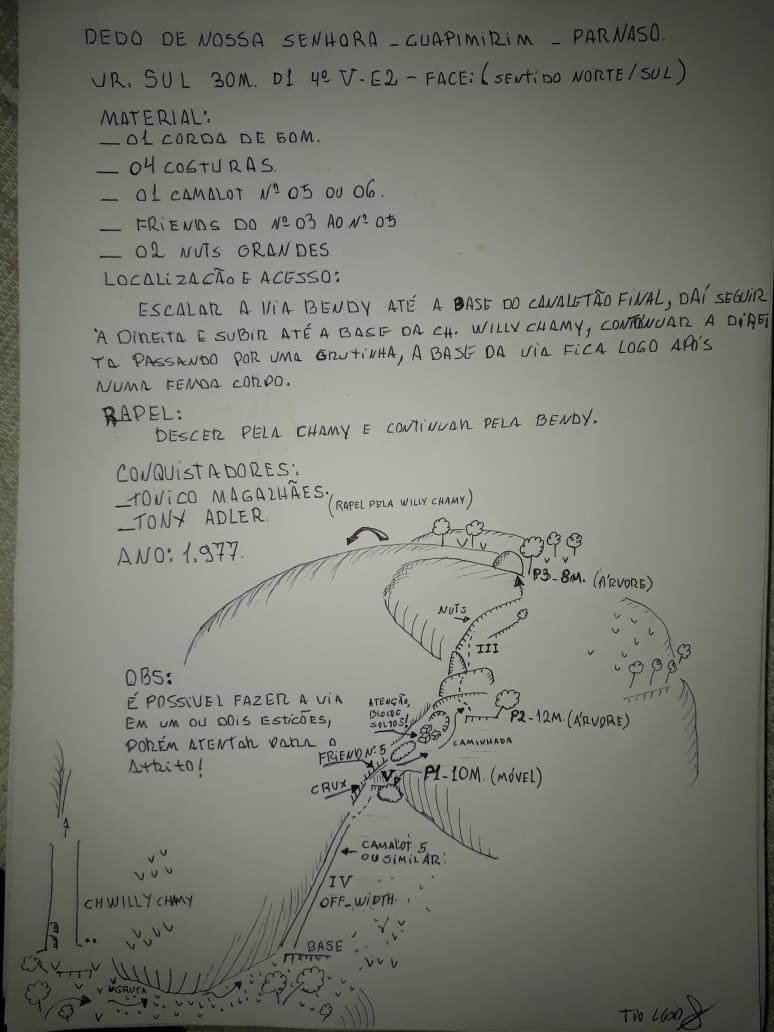 DEDO DE NOSSA SENHORA - GUAPIMIRIM - PARNASO.
VR. SUL 30M. D1 4º V-E2 - FACE: (SENTIDO NORTE/SUL)
MATERIAL:
- 01 CORDA DE 60M.
- 04 COSTURAS.
- 01 CAMALOT Nº 05 OU 06.
- FRIENDS DO Nº 03 AO Nº 05
- 02 NUTS GRANDES
LOCALIZACÃO E ACESSO:
ESCALAR A VIA BENDY ATÉ A BASE DO CAVALETÃO FINAL, DAÍ SEGUIR
À DIREITA E SUBIR ATÉ A BASE DA CH. WILLY CHAMY, CONTINUAR A DIREI
TA PASSANDO POR UMA GRUTINHA, A BASE DA VIA FICA LOGO APÓS
NUMA FENDA CORDO.
RAPEL:
DESCER PELA CHAMY E CONTINUAR PELA BENDY.
CONQUISTADORES:
-TONICO MAGALHÃES.
-TONY ADLER.
(RAPEL PELA WILLY CHAMY)
ANO: 1.977.
P3-8M. (ÁRVORE)
NUTS
III
OBS:
É POSSIVEL FAZER A VIA
EM UM OU DOIS ESTICÕES,
PORÉM ATENTAR PARA O
ATRITO!
ATENÇÃO,
BLOCOS
SOLTOS!
P2-12M. (ÁRVORE)
CAMINHADA
FRIEND Nº 5
CRUX
V
P1-10M. (MÓVEL)
CAMALOT 5
OU SIMILAR!
IV
OFF-WIDTH.
CH. WILLY CHAMY
BASE
GRUTA
TIO